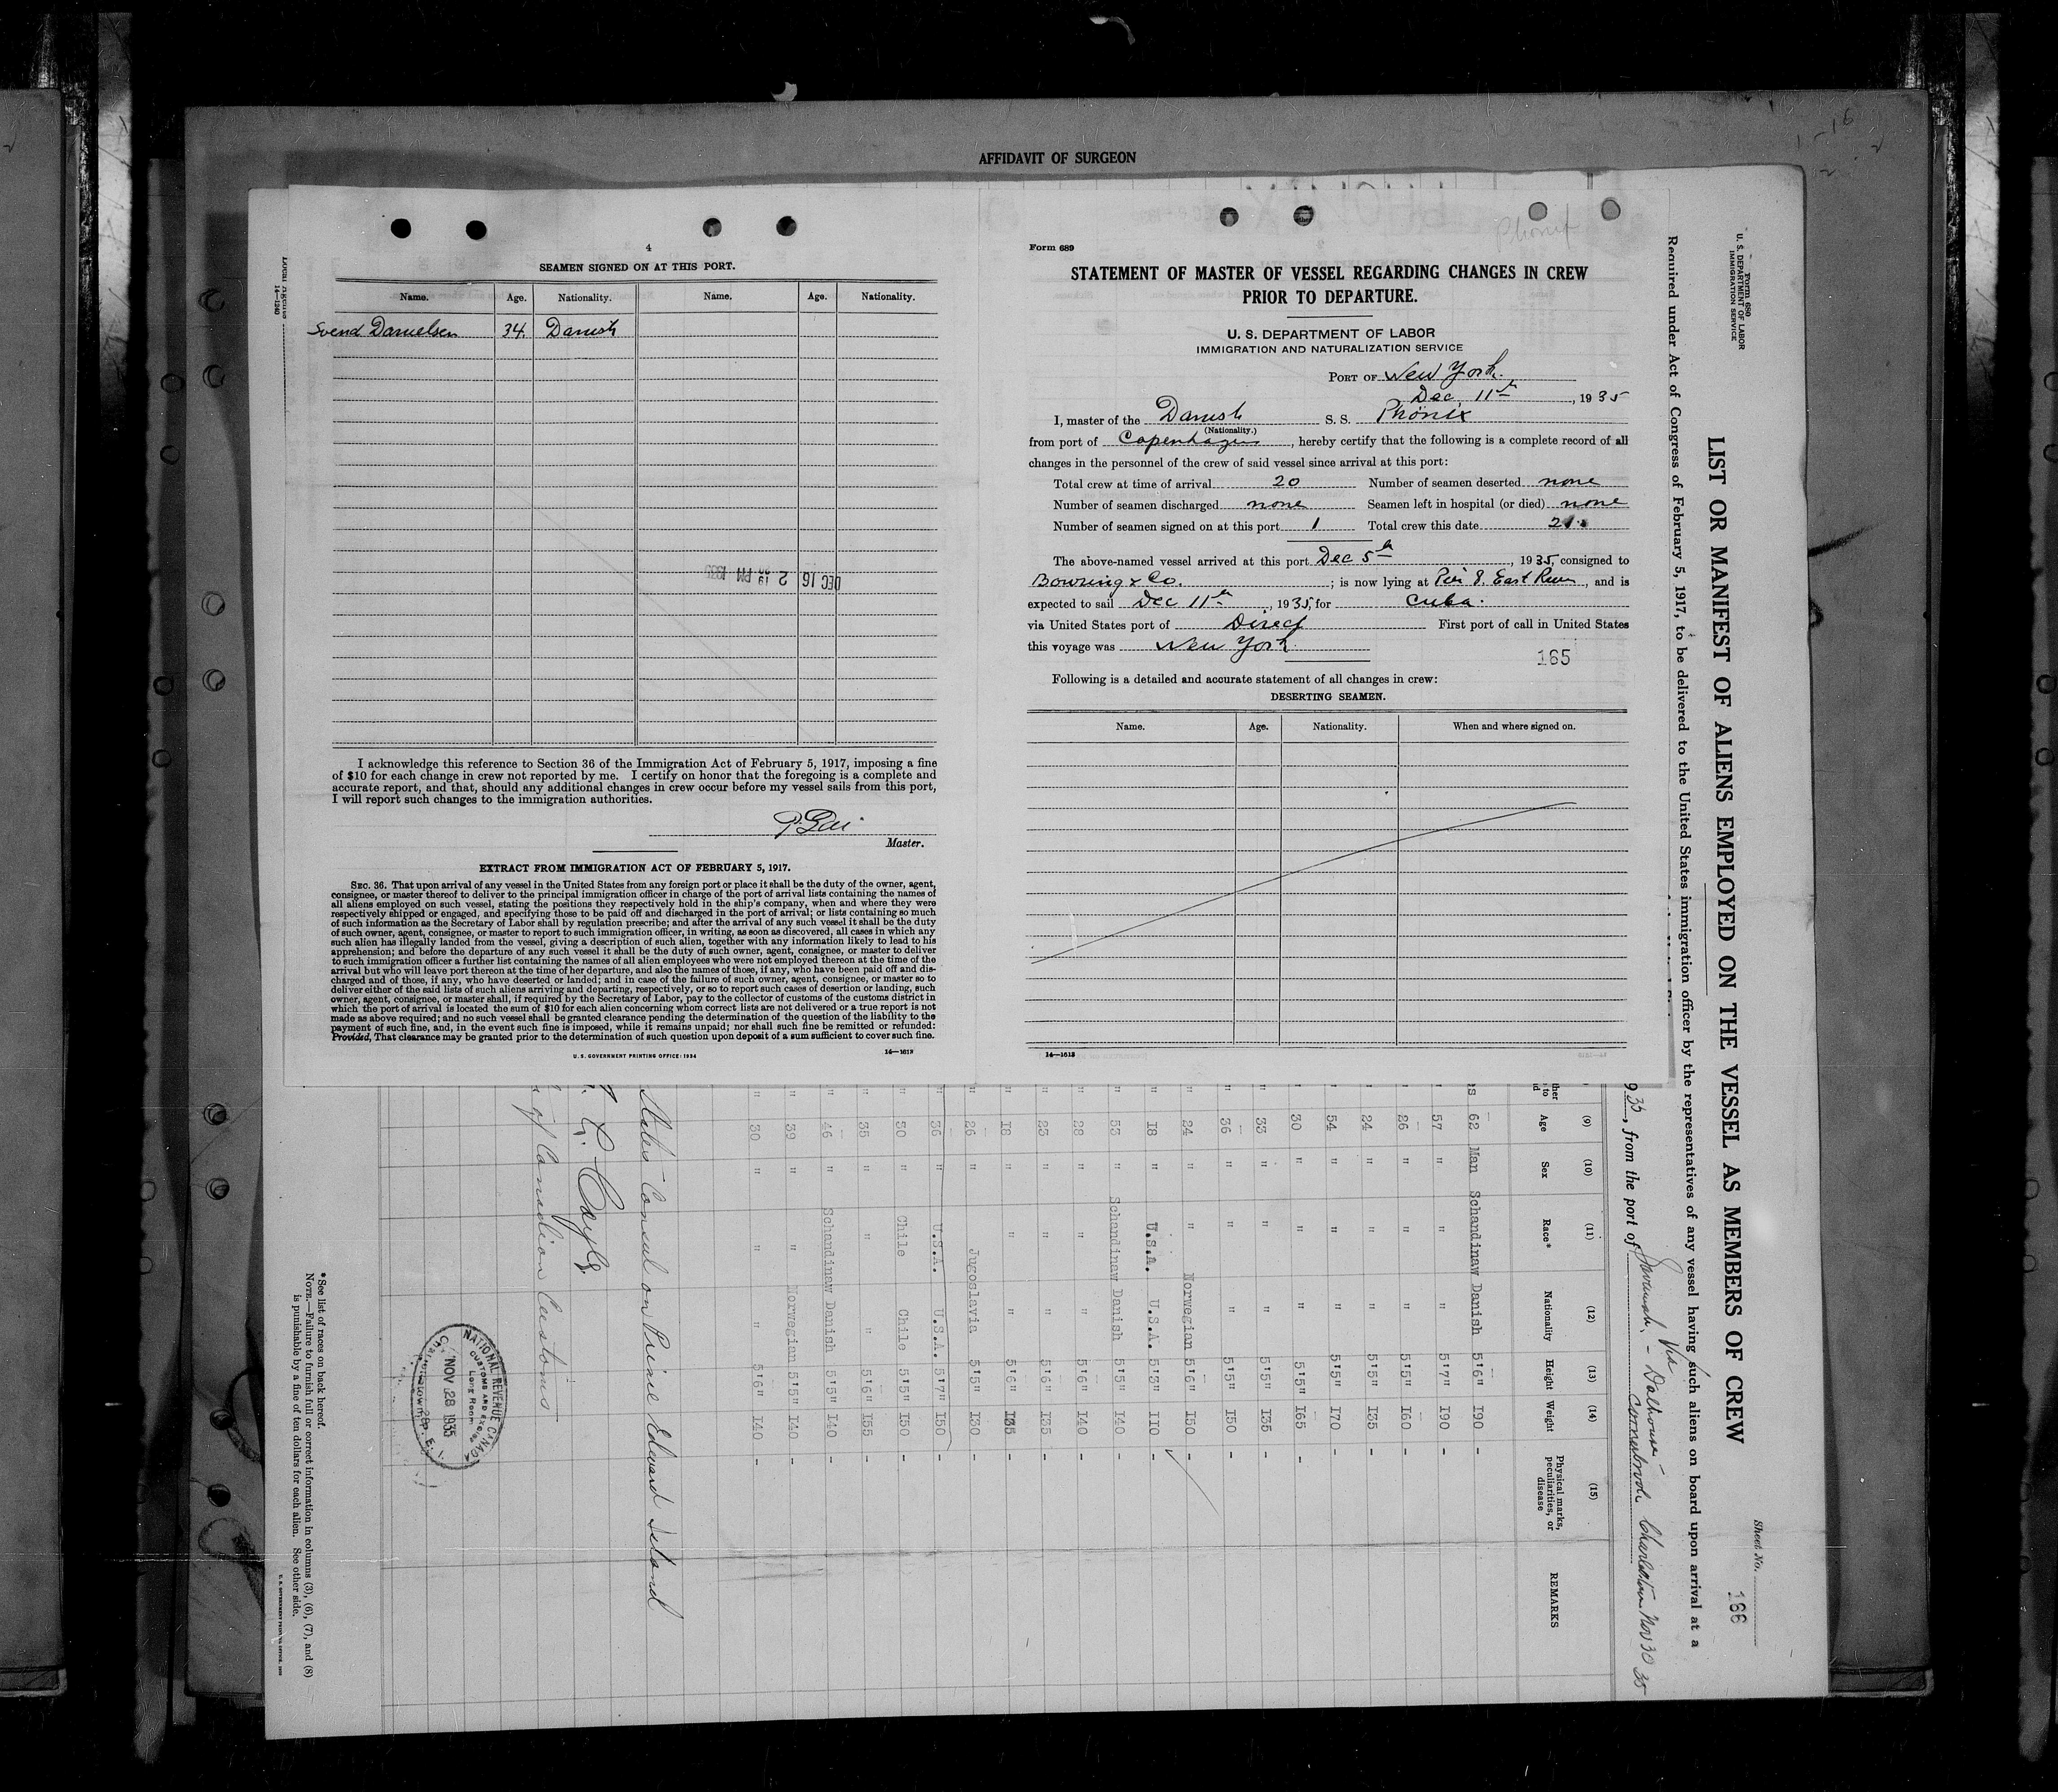 AFFIDAVIT OF SURGEON
4
SEAMEN SIGNED ON AT THIS PORT.
Name. Age. Nationality. Name. Age. Nationality.
Svend Danielsen 34. Danish
DEC 16 2 19 PM 1935
I acknowledge this reference to Section 36 of the Immigration Act of February 5, 1917, imposing a fine
of $10 for each change in crew not reported by me. I certify on honor that the foregoing is a complete and
accurate report, and that, should any additional changes in crew occur before my vessel sails from this port,
I will report such changes to the immigration authorities.
Master.
EXTRACT FROM IMMIGRATION ACT OF FEBRUARY 5, 1917.
SEC. 36. That upon arrival of any vessel in the United States from any foreign port or place it shall be the duty of the owner, agent,
consignee, or master thereof to deliver to the principal immigration officer in charge of the port of arrival lists containing the names of
all aliens employed on such vessel, stating the positions they respectively hold in the ship's company, when and where they were
respectively shipped or engaged, and specifying those to be paid off and discharged in the port of arrival; or lists containing so much
of such information as the Secretary of Labor shall by regulation prescribe; and after the arrival of any such vessel it shall be the duty
of such owner, agent, consignee, or master to report to such immigration officer, in writing, as soon as discovered, all cases in which any
such alien has illegally landed from the vessel, giving a description of such alien, together with any information likely to lead to his
apprehension; and before the departure of any such vessel it shall be the duty of such owner, agent, consignee, or master to deliver
to such immigration officer a further list containing the names of all alien employees who were not employed thereon at the time of the
arrival but who will leave port thereon at the time of her departure, and also the names of those, if any, who have been paid off and dis-
charged and of those, if any, who have deserted or landed; and in case of the failure of such owner, agent, consignee, or master so to
deliver either of the said lists of such aliens arriving and departing, respectively, or so to report such cases of desertion or landing, such
owner, agent, consignee, or master shall, if required by the Secretary of Labor, pay to the collector of customs of the customs district in
which the port of arrival is located the sum of $10 for each alien concerning whom correct lists are not delivered or a true report is not
made as above required; and no such vessel shall be granted clearance pending the determination of the question of the liability to the
payment of such fine, and, in the event such fine is imposed, while it remains unpaid; nor shall such fine be remitted or refunded:
Provided, That clearance may be granted prior to the determination of such question upon deposit of a sum sufficient to cover such fine.
U. S. GOVERNMENT PRINTING OFFICE: 1934 14—1613
Phönix
Form 689
STATEMENT OF MASTER OF VESSEL REGARDING CHANGES IN CREW
PRIOR TO DEPARTURE.
U. S. DEPARTMENT OF LABOR
IMMIGRATION AND NATURALIZATION SERVICE
PORT OF New York.
Dec 11th, 1935
I, master of the Danish S. S. Phönix
(Nationality.)
from port of Copenhagen, hereby certify that the following is a complete record of all
changes in the personnel of the crew of said vessel since arrival at this port:
Total crew at time of arrival 20 Number of seamen deserted none
Number of seamen discharged none Seamen left in hospital (or died) none
Number of seamen signed on at this port 1 Total crew this date 21.
The above-named vessel arrived at this port Dec 5th, 1935, consigned to
Bowring & Co.; is now lying at Pier 8. East River, and is
expected to sail Dec 11th, 1935, for Cuba.
via United States port of Direct First port of call in United States
this voyage was New York.
165
Following is a detailed and accurate statement of all changes in crew:
DESERTING SEAMEN.
Name. Age. Nationality. When and where signed on.
14—1613
Form 680
U. S. DEPARTMENT OF LABOR
IMMIGRATION SERVICE
Sheet No.
166
LIST OR MANIFEST OF ALIENS EMPLOYED ON THE VESSEL AS MEMBERS OF CREW
Required under Act of Congress of February 5, 1917, to be delivered to the United States immigration officer by the representatives of any vessel having such aliens on board upon arrival at a
Via
35, from the port of Savannah, - Dalhousie - Cornerbrook Charleston Nov 30 35
(9) (10) (11) (12) (13) (14) (15)
Age Sex Race* Nationality Height Weight Physical marks, peculiarities, or disease REMARKS
62 Man Schandinaw Danish 5'6" 190 -
57 " " " 5'7" 190 -
26 " " " 5'5" 160 -
24 " " " 5'5" 135 -
54 " " " 5'5" 170 -
30 " " " 5'5" 165 -
33 " " " 5'5" 135 -
36 " " " 5'5" 150 -
24 " " Norwegian 5'6" 150 -
18 " U.S.A. U.S.A. 5'3" 110 -
53 " Schandinaw Danish 5'5" 140 -
28 " " " 5'6" 140 -
23 " " " 5'6" 135 -
18 " " " 5'6" 135 -
26 " Jugoslavia 5'5" 130 -
36 " U.S.A. U.S.A. 5'7" 160 -
50 " Chile Chile 5'5" 150 -
35 " " 5'6" 155 -
46 " Schandinaw Danish 5'5" 140 -
39 " " Norwegian 5'5" 140 -
30 " " " 5'6" 140 -
States Consul on Prince Edward Island
of Canadian Customs
NATIONAL REVENUE CANADA
CUSTOMS AND EXCISE
Long Room
NOV 28 1935
P. E. I.
* See list of races on back hereof.
NOTE.—Failure to furnish full or correct information in columns (3), (6), (7), and (8)
is punishable by a fine of ten dollars for each alien. See other side.
14—1240